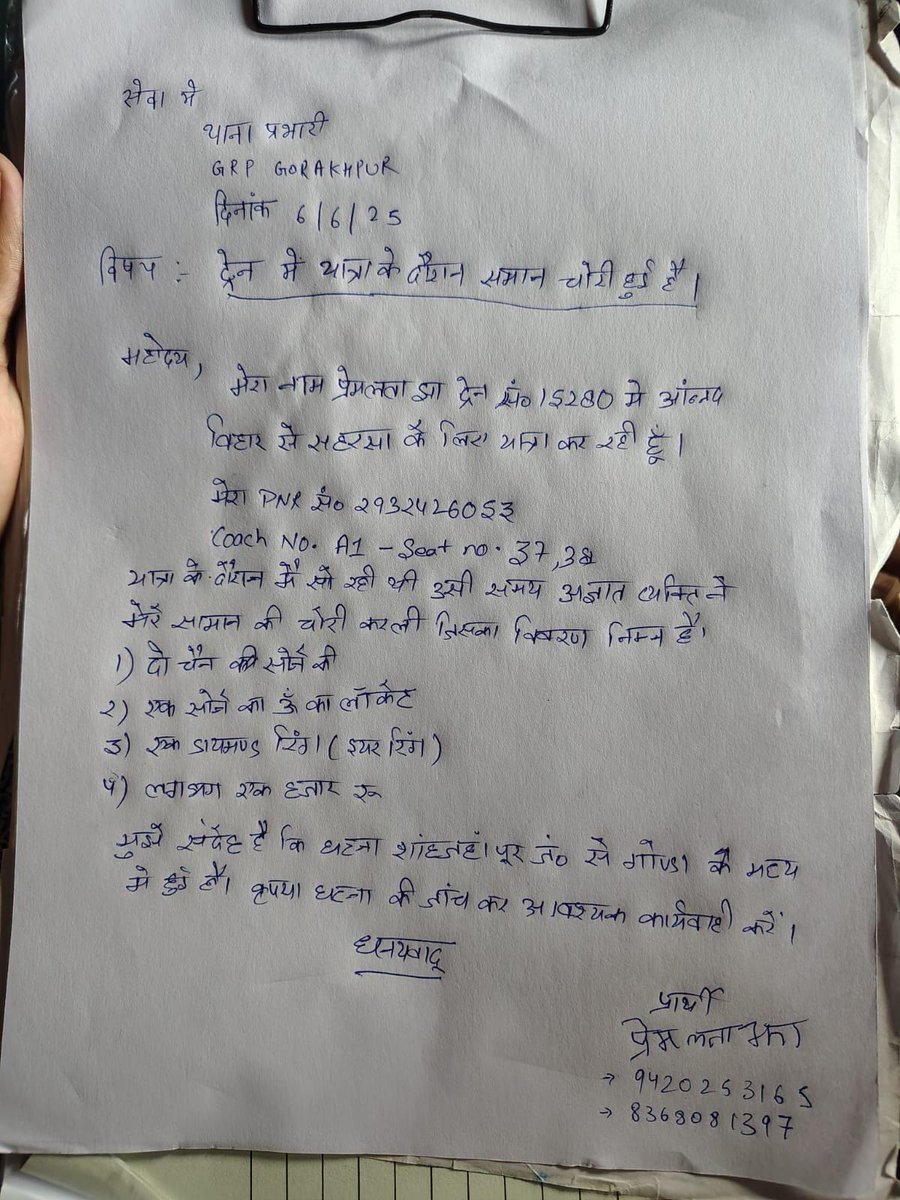 सेवा मे
थाना प्रभारी
GRP GORAKHPUR
दिनांक 6/6/25
विषय :- ट्रेन में यात्रा के दौरान समान चोरी हुई है।
महोदय,
मेरा नाम प्रेमलता झा ट्रेन सं० 15280 मे आंनन्द
विहार से सहरसा के लिए यात्रा कर रही हूँ।
मेरा PNR सं० 2932426053
Coach NO. A1 - Seat no. 37,38
यात्रा के दौरान मैं सो रही थी उसी समय अज्ञात व्यक्ति ने
मेरे सामान की चोरी करली जिसका विवरण निम्न है।
1) दो चैन सोने की
२) एक सोने का ॐ का लॉकेट
3) एक डायमण्ड रिंग। (इयर रिंग)
4) लगभग एक हजार रू
मुझे संदेह है कि घटना शांहजहांपूर जं० से गोण्डा के मध्य
मे हुई है। कृपया घटना की जांच कर आवश्यक कार्यवाही करें।
धन्यवाद
प्रार्थी
प्रेमलता झा
→ 9420253165
→ 8368081397